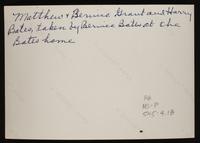 Matthew & Bernice Grant and Harry
Bates, taken by Bernice Bates at the
Bates home
PA
MS-P
545-4.13